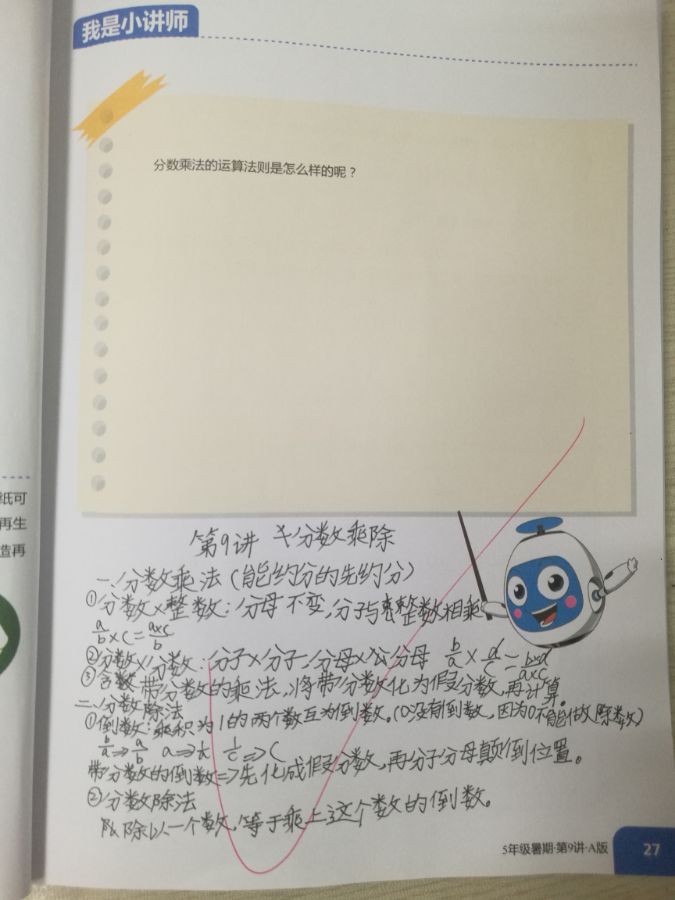 我是小讲师
分数乘法的运算法则是怎么样的呢？
纸可
再生
造再
第9讲 分数乘除
一、分数乘法（能约分的先约分）
①分数×整数：分母不变，分子与整数相乘
a/b×c=a×c/b
②分数×分数：分子×分子，分母×分母 b/a×d/c=b×d/a×c
③带分数的乘法，将带分数化为假分数，再计算。
二、分数除法
①倒数：乘积为1的两个数互为倒数。（0没有倒数，因为0不能做除数）
b/a⇒a/b a⇒1/a 1/c⇒c
带分数的倒数⇒先化成假分数，再分子分母颠倒位置。
②分数除法
除以一个数，等于乘上这个数的倒数。
5年级暑期·第9讲·A版
27